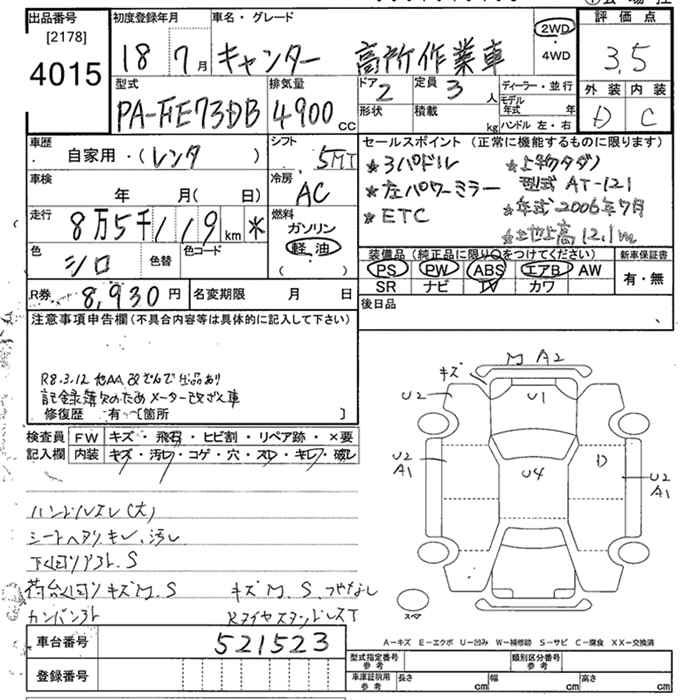 出品番号
[2178]
4015
初度登録年月
18 7月
車名・グレード
キャンター 高所作業車
2WD
・
4WD
評価点
3.5
外装 内装
D C
型式
PA-FE73DB
排気量
4900 CC
ドア
2
定員
3 人
形状
積載 kg
ディーラー・並行
モデル年式 年
ハンドル 左・右
車歴
自家用・(レンタ )
シフト
5MT
車検
年 月( 日)
冷房
AC
走行
8万5千119km *
燃料
ガソリン
軽油
・( )
色
シロ
色替
色コード
R券 8,930円
名変期限 月 日
セールスポイント(正常に機能するものに限ります)
*3パドル
*左パワーミラー
*ETC
*上物タダノ
型式 AT-121
*年式 2006年7月
*地上高 12.1m
装備品(純正品に限り○をつけてください)
PS PW ABS エアB AW
SR ナビ TV カワ
新車保証書
有・無
後日品
注意事項申告欄(不具合内容等は具体的に記入して下さい)
R8.3.12 他AA改ざんで出品あり
記録簿欠のためメーター改ざん車
修復歴 有−[箇所 ]
検査員記入欄
FW キズ・飛石・ヒビ割・リペア跡・×要
内装 キズ・汚レ・コゲ・穴・スレ・キレ・破レ
ハンドルスレ(大)
シートヘタリ、キレ、汚レ
下回リ S
荷台回リ キズ M.S キズ M.S
車台番号 521523
登録番号
キズ M A2
U2 U1
U2 A1 U4 D U2 A1
スペア
A−キズ E−エクボ U−凹み W−補修跡 S−サビ C−腐食 XX−交換済
型式指定番号 参考
類別区分番号 参考
車庫証明用 参考
長さ cm 幅 cm 高さ cm